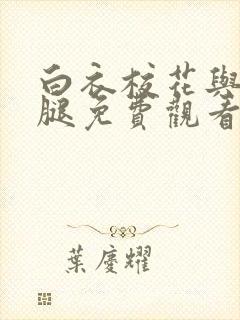 白衣校花與
腿免費觀看
葉慶耀